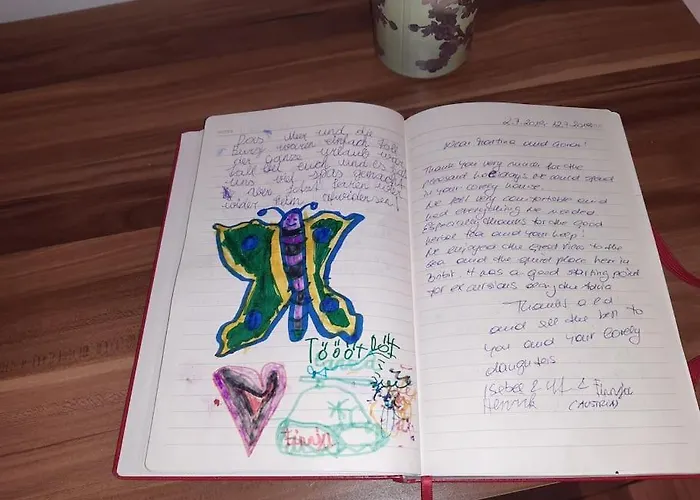 Das Meer und die
Burg waren einfach toll
der ganze Urlaub war
toll bei euch und es hat
uns viel spas gemacht
Aber jetzt fahren wir
wieder heim
Töööt
Finnja
2.7.2019 12.7.2019
Dear Martina and Goran!
Thank you very much for the
pleasant holidays we could spend
in your lovely house.
We felt very comfortable and
had everything we needed.
Especially thanks for the good
herbal tea and your help!
We enjoyed the great view to the
sea and the quiet place here in
It was a good starting point
for excursions along the
Thanks a lot
and all the best to
you and your lovely
daughters
&
Henrik
(AUSTRIA)